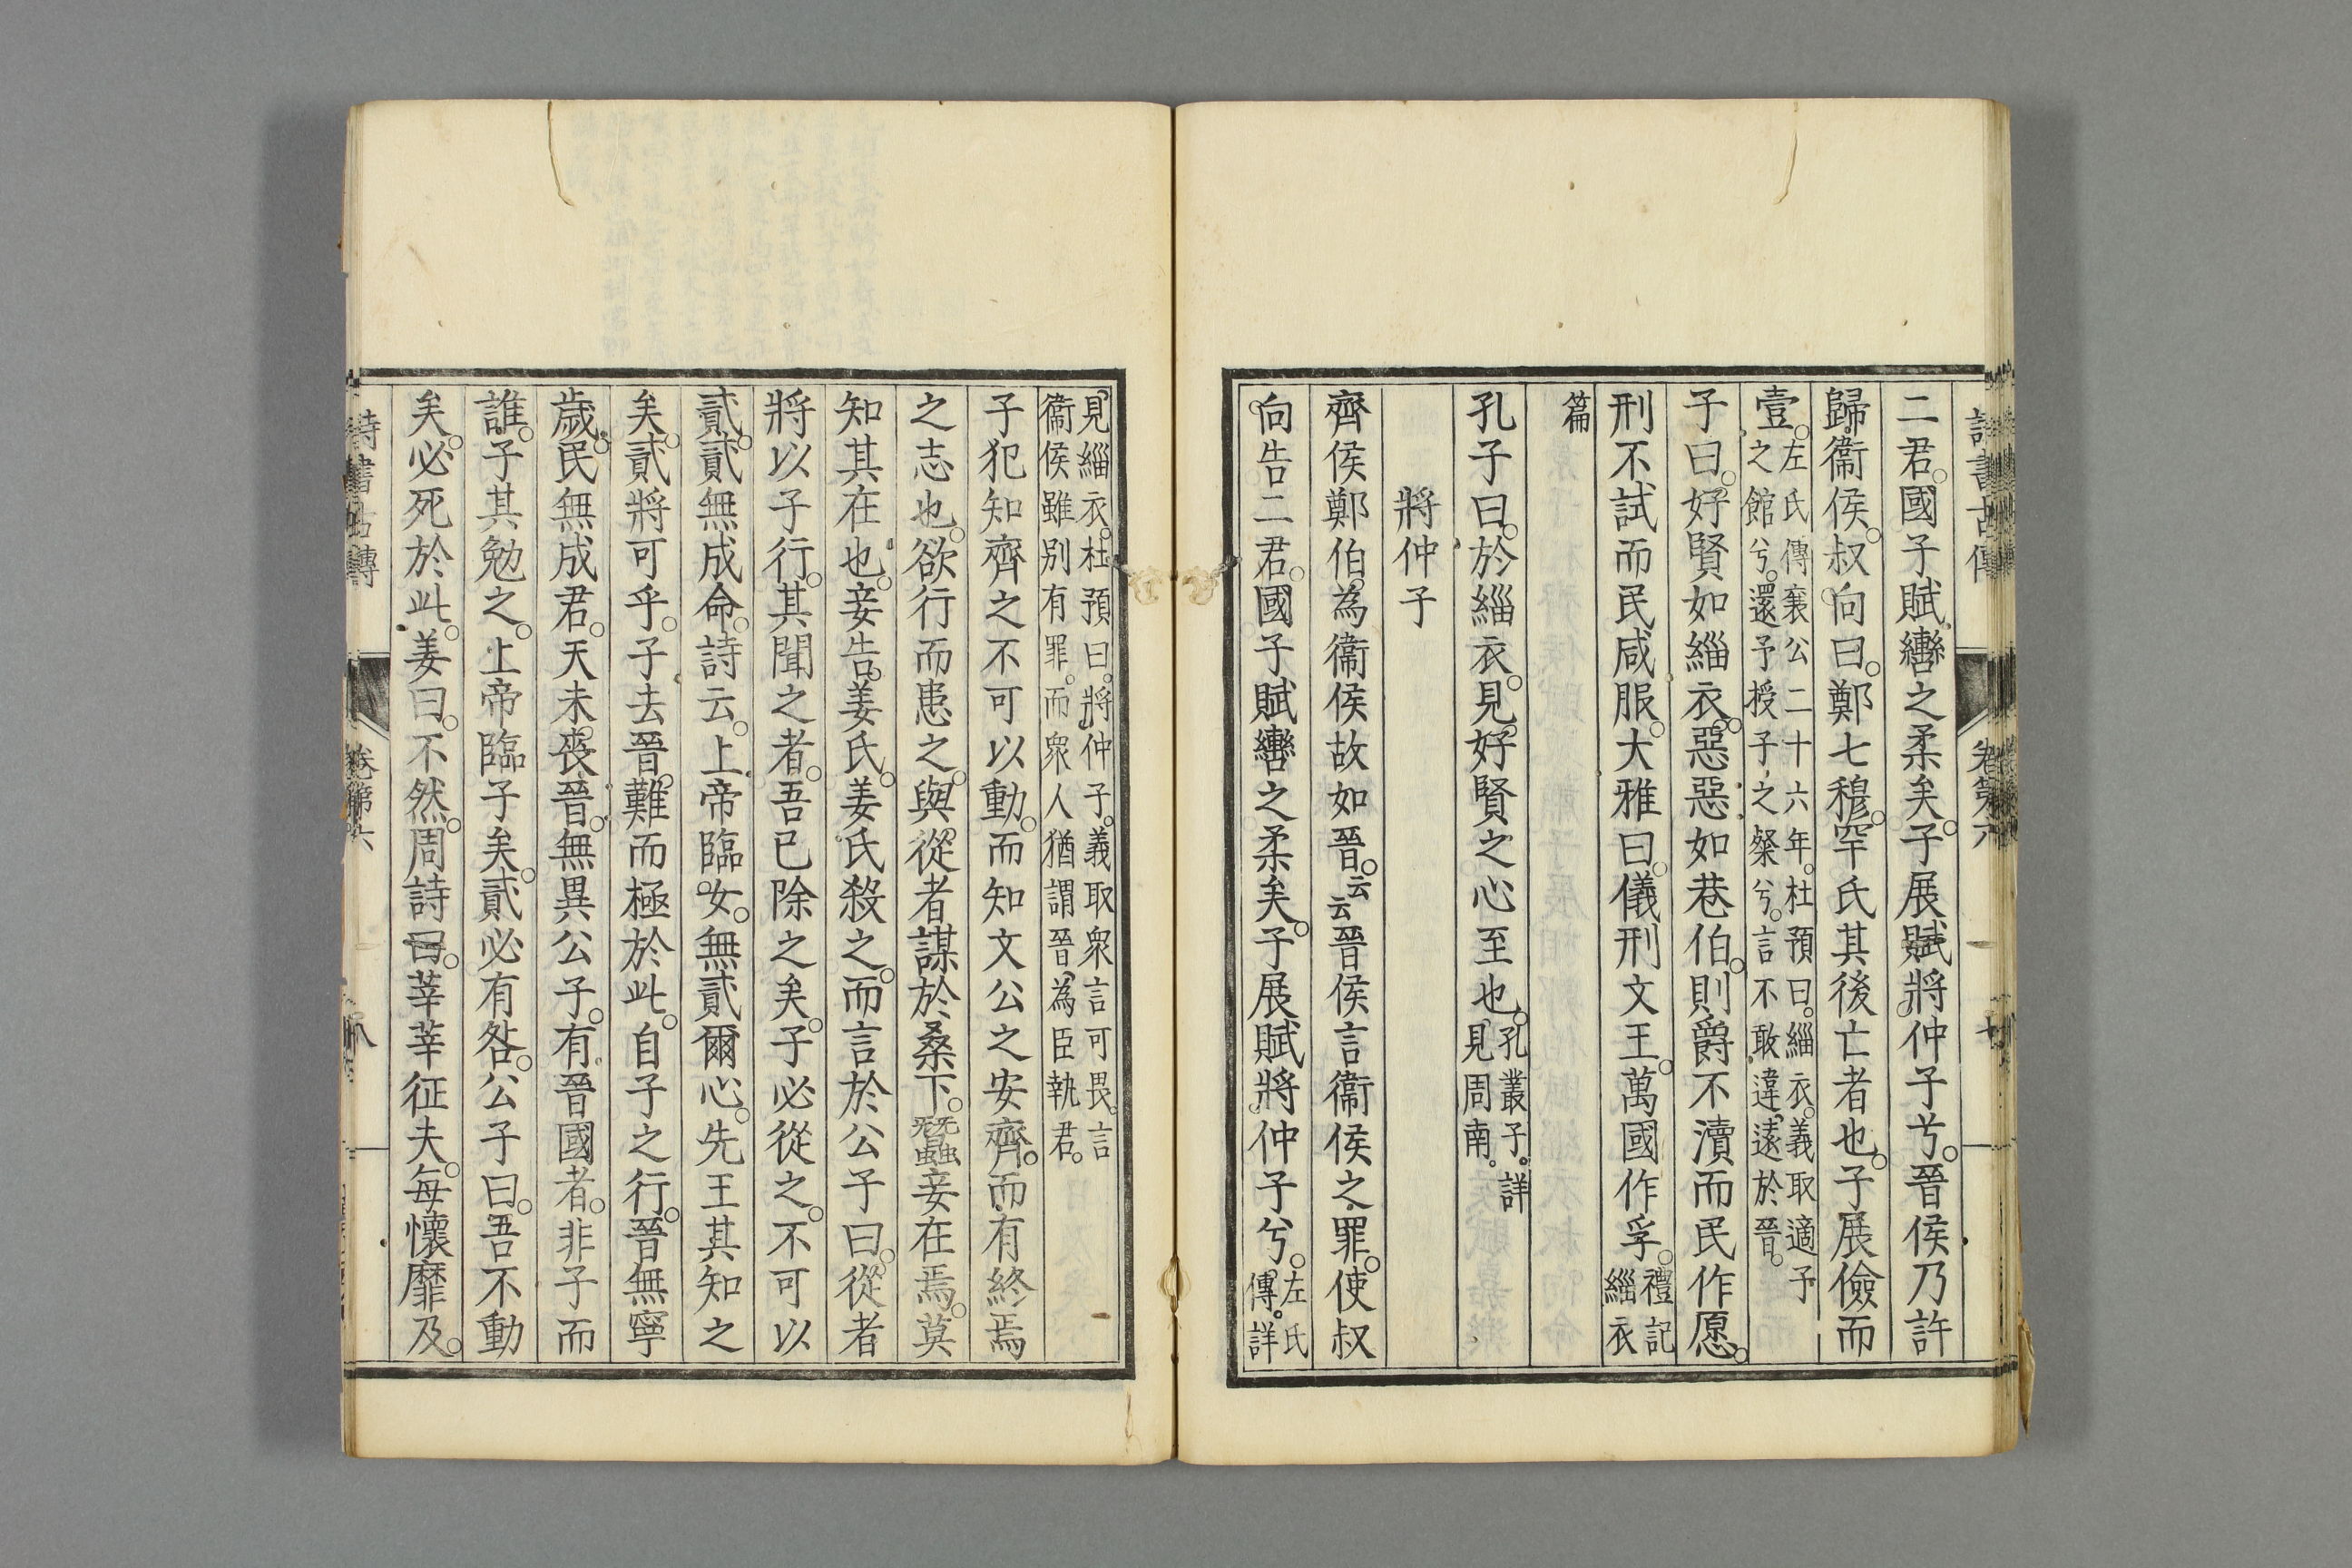 詩書古傳 卷第六
二君。國子賦轡之柔矣。子展賦將仲子兮。晉侯乃許
歸衞侯。叔向曰。鄭七穆。罕氏其後亡者也。子展儉而
壹。左氏傳襄公二十六年。杜預曰。緇衣。義取適子
之館兮。還予授子之粲兮。言不敢違遠於晉。
子曰。好賢如緇衣。惡惡如巷伯。則爵不瀆而民作愿。
刑不試而民咸服。大雅曰。儀刑文王。萬國作孚。禮記
緇衣
篇
孔子曰。於緇衣。見好賢之心至也。孔叢子。詳
見周南。
將仲子
齊侯鄭伯。為衞侯故如晉。云云晉侯言衞侯之罪。使叔
向告二君。國子賦轡之柔矣。子展賦將仲子兮。左氏
傳。詳
見緇衣。杜預曰。將仲子。義取衆言可畏。言
衞侯雖別有罪。而衆人猶謂晉為臣執君。
子犯知齊之不可以動。而知文公之安齊。而有終焉
之志也。欲行而患之。與從者謀於桑下。蠶妾在焉。莫
知其在也。妾告姜氏。姜氏殺之。而言於公子曰。從者
將以子行。其聞之者。吾已除之矣。子必從之。不可以
貳。貳無成命。詩云。上帝臨女。無貳爾心。先王其知之
矣。貳將可乎。子去晉難而極於此。自子之行。晉無寧
歲。民無成君。天未喪晉。無異公子。有晉國者。非子而
誰。子其勉之。上帝臨子矣。貳必有咎。公子曰。吾不動
矣。必死於此。姜曰。不然。周詩曰。莘莘征夫。每懷靡及。
詩書古傳 卷第六 八